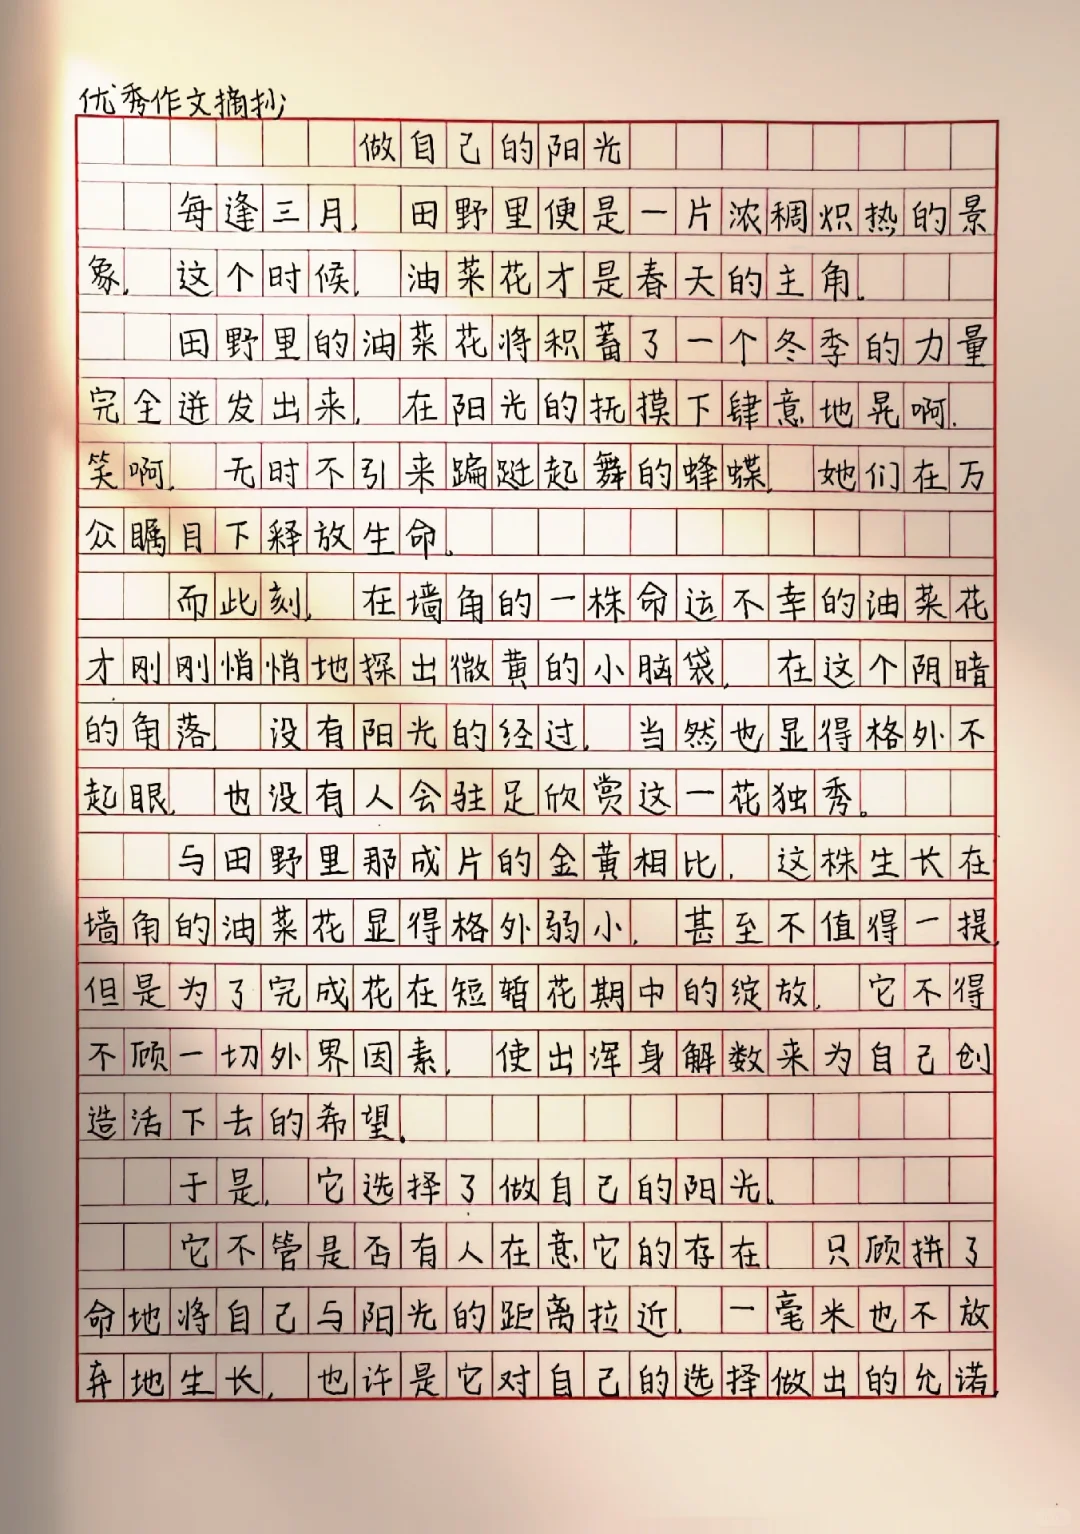 优秀作文摘抄
做自己的阳光
每逢三月，田野里便是一片浓稠炽热的景
象，这个时候，油菜花才是春天的主角。
田野里的油菜花将积蓄了一个冬季的力量
完全迸发出来，在阳光的抚摸下肆意地晃啊，
笑啊，无时不引来蹁跹起舞的蜂蝶，她们在万
众瞩目下释放生命。
而此刻，在墙角的一株命运不幸的油菜花
才刚刚悄悄地探出微黄的小脑袋，在这个阴暗
的角落，没有阳光的经过，当然也显得格外不
起眼，也没有人会驻足欣赏这一花独秀。
与田野里那成片的金黄相比，这株生长在
墙角的油菜花显得格外弱小，甚至不值得一提，
但是为了完成花在短暂花期中的绽放，它不得
不顾一切外界因素，使出浑身解数来为自己创
造活下去的希望。
于是，它选择了做自己的阳光。
它不管是否有人在意它的存在，只顾拼了
命地将自己与阳光的距离拉近，一毫米也不放
弃地生长，也许是它对自己的选择做出的允诺，